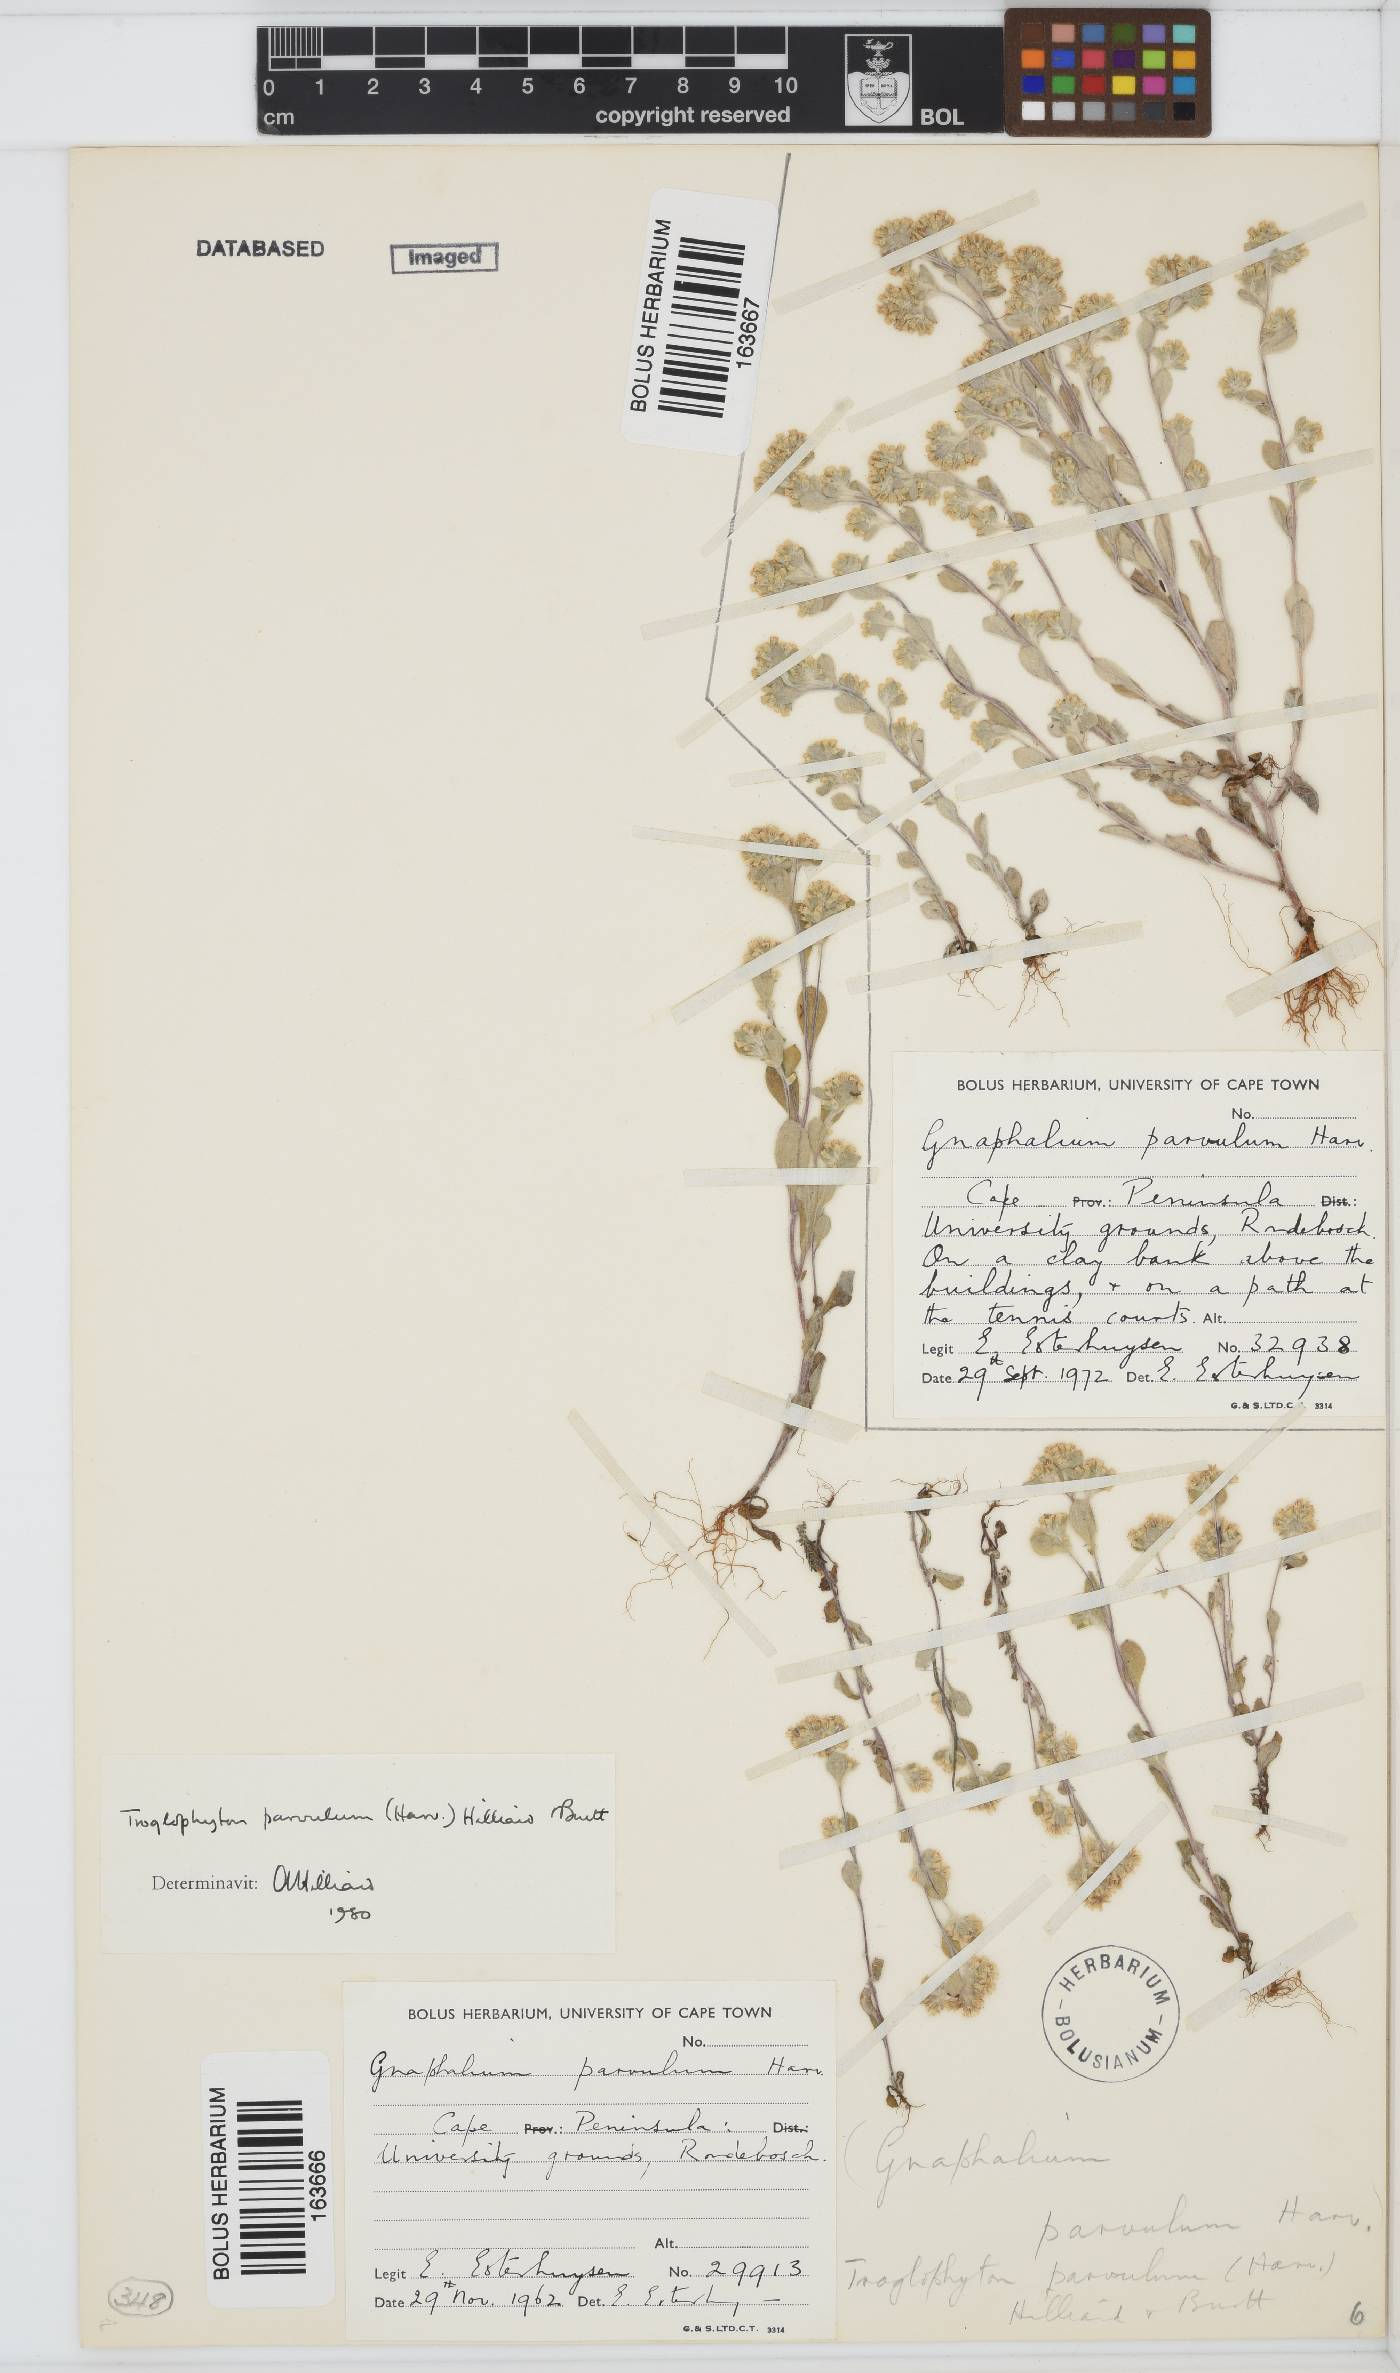 0 1 2 3 4 5 6 7 8 9 10
cm
copyright reserved
BOL
DATABASED
Imaged
BOLUS HERBARIUM
163667
BOLUS HERBARIUM, UNIVERSITY OF CAPE TOWN
No.
Gnaphalium parvulum Harv.
Cape Prov.: Peninsula Dist.:
University grounds, Rondebosch.
On a clay bank above the
buildings, + on a path at
the tennis courts. Alt.
Legit E. Esterhuysen No. 32938
Date 29th Sept. 1972 Det. E. Esterhuysen
G. & S. LTD. C.T. 3314
Troglophyton parvulum (Harv.) Hilliard Burtt
Determinavit: OHilliard
1980
HERBARIUM
BOLUSIANUM
BOLUS HERBARIUM, UNIVERSITY OF CAPE TOWN
No.
Gnaphalium parvulum Harv.
Cape Prov.: Peninsula: Dist.:
University grounds, Rondebosch.
Alt.
Legit E. Esterhuysen No. 29913
Date 29th Nov. 1962 Det. E. Esterh
G. & S. LTD. C.T. 3314
BOLUS HERBARIUM
163666
(Gnaphalium
parvulum Harv.)
Troglophyton parvulum (Harv.)
Hilliard & Burtt
348
6